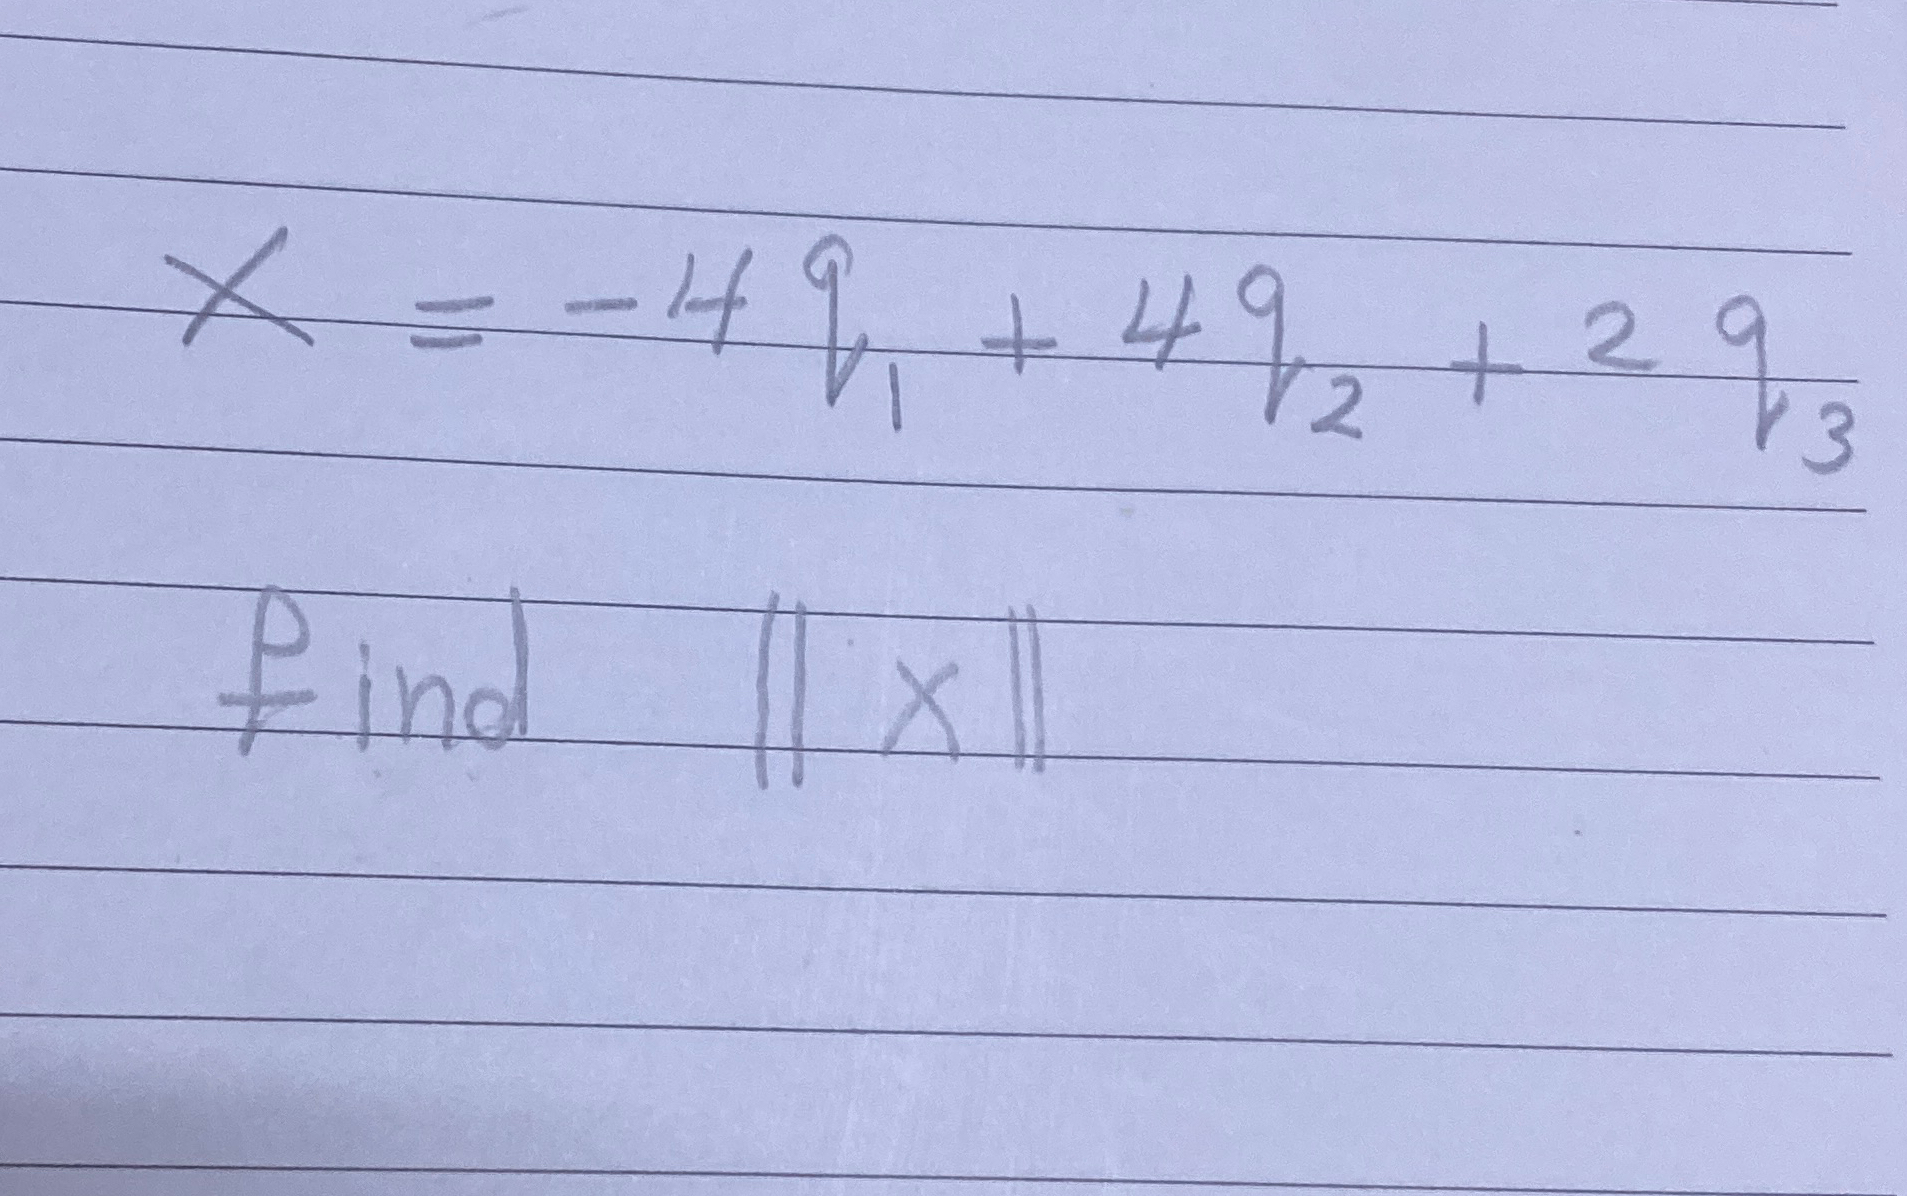 x = -4q₁ + 4q₂ + 2q₃
find ||x||